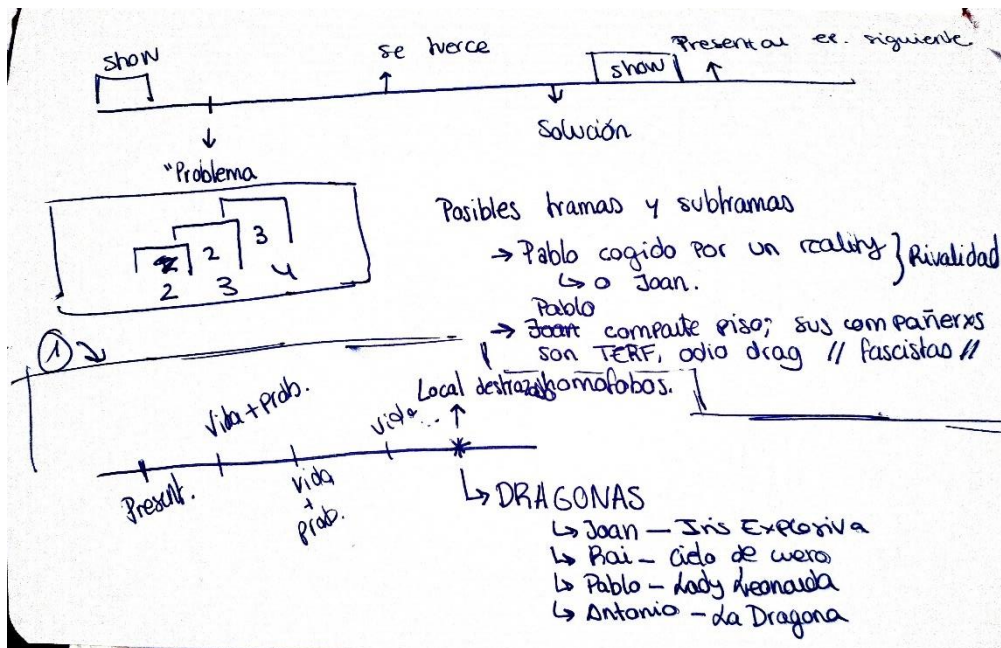 show
se tuerce
show
Presentar el siguiente
Solución
"Problema
2 3
2 3 4
Posibles tramas y subtramas
→ Pablo cogido por un reality } Rivalidad
↳ o Joan.
Pablo
→ Joan comparte piso; sus compañerxs
son TERF, odio drag // fascistas //
homofobos.
①
Local destrozado
Vida + prob.
vida...
Present.
vida
+
prob.
↳ DRAGONAS
↳ Joan — Iris Explosiva
↳ Rai — Cielo de cuero
↳ Pablo — Lady Leonarda
↳ Antonio — La Dragona